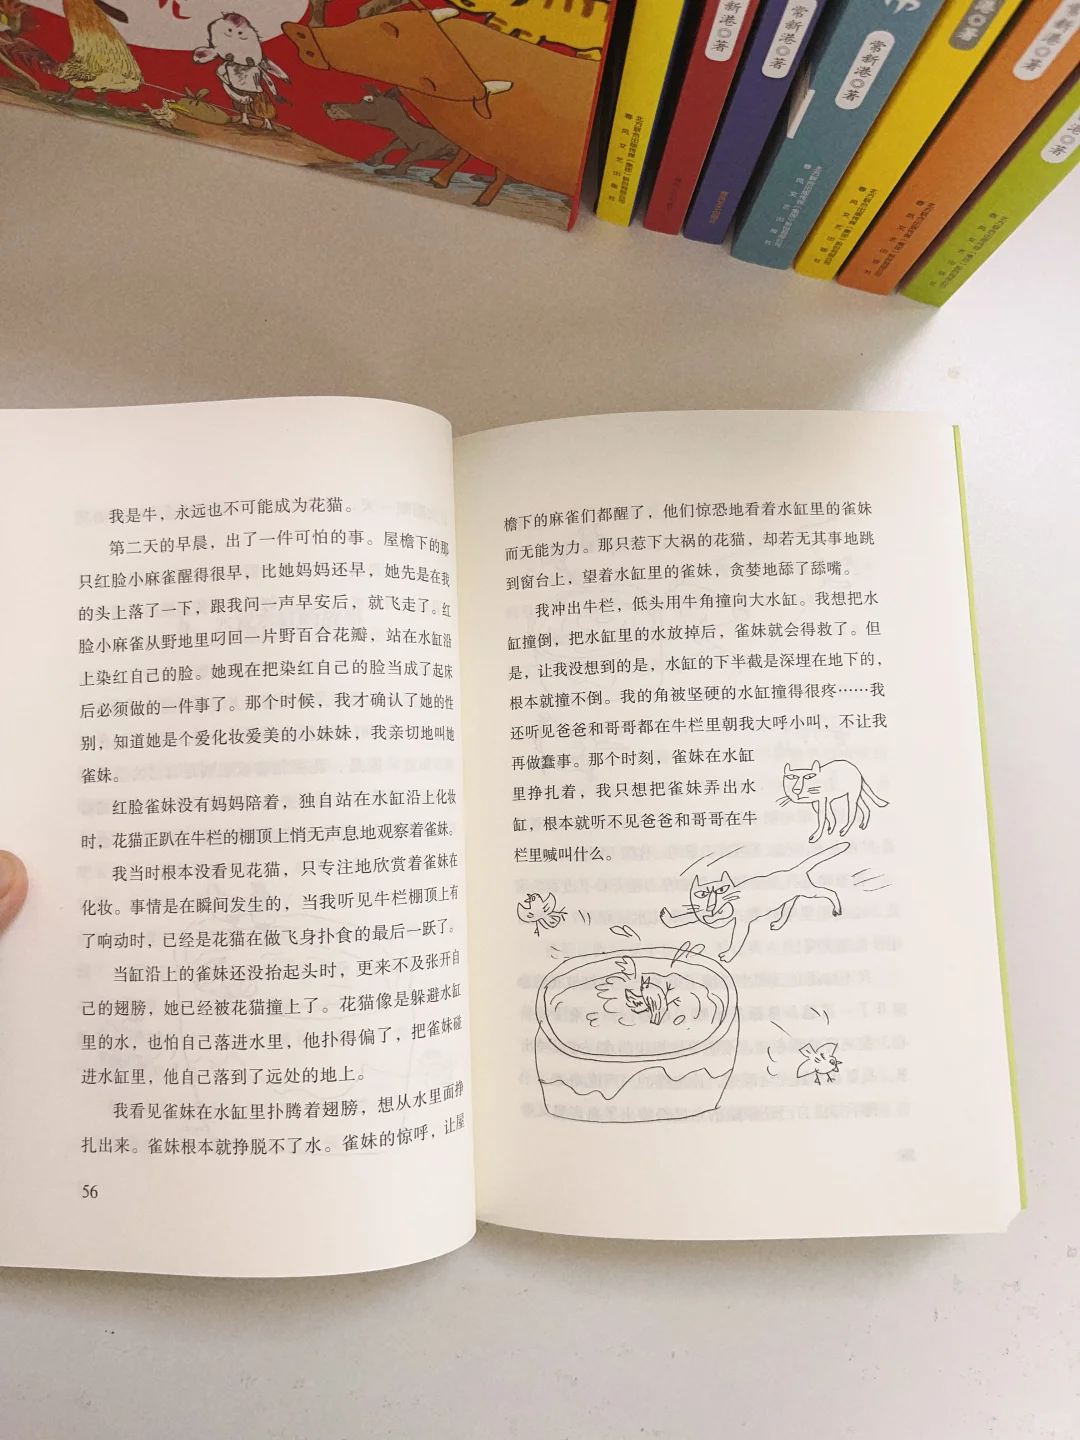 常新港◎著
常新港◎著
常新港◎著
港◎著
常新港◎著
港◎著
我是牛，永远也不可能成为花猫。
第二天的早晨，出了一件可怕的事。屋檐下的那
只红脸小麻雀醒得很早，比她妈妈还早，她先是在我
的头上落了一下，跟我问一声早安后，就飞走了。红
脸小麻雀从野地里叼回一片野百合花瓣，站在水缸沿
上染红自己的脸。她现在把染红自己的脸当成了起床
后必须做的一件事了。那个时候，我才确认了她的性
别，知道她是个爱化妆爱美的小妹妹，我亲切地叫她
雀妹。
红脸雀妹没有妈妈陪着，独自站在水缸沿上化妆
时，花猫正趴在牛栏的棚顶上悄无声息地观察着雀妹。
我当时根本没看见花猫，只专注地欣赏着雀妹在
化妆。事情是在瞬间发生的，当我听见牛栏棚顶上有
了响动时，已经是花猫在做飞身扑食的最后一跃了。
当缸沿上的雀妹还没抬起头时，更来不及张开自
己的翅膀，她已经被花猫撞上了。花猫像是躲避水缸
里的水，也怕自己落进水里，他扑得偏了，把雀妹碰
进水缸里，他自己落到了远处的地上。
我看见雀妹在水缸里扑腾着翅膀，想从水里面挣
扎出来。雀妹根本就挣脱不了水。雀妹的惊呼，让屋
56
檐下的麻雀们都醒了，他们惊恐地看着水缸里的雀妹
而无能为力。那只惹下大祸的花猫，却若无其事地跳
到窗台上，望着水缸里的雀妹，贪婪地舔了舔嘴。
我冲出牛栏，低头用牛角撞向大水缸。我想把水
缸撞倒，把水缸里的水放掉后，雀妹就会得救了。但
是，让我没想到的是，水缸的下半截是深埋在地下的，
根本就撞不倒。我的角被坚硬的水缸撞得很疼……我
还听见爸爸和哥哥都在牛栏里朝我大呼小叫，不让我
再做蠢事。那个时刻，雀妹在水缸
里挣扎着，我只想把雀妹弄出水
缸，根本就听不见爸爸和哥哥在牛
栏里喊叫什么。